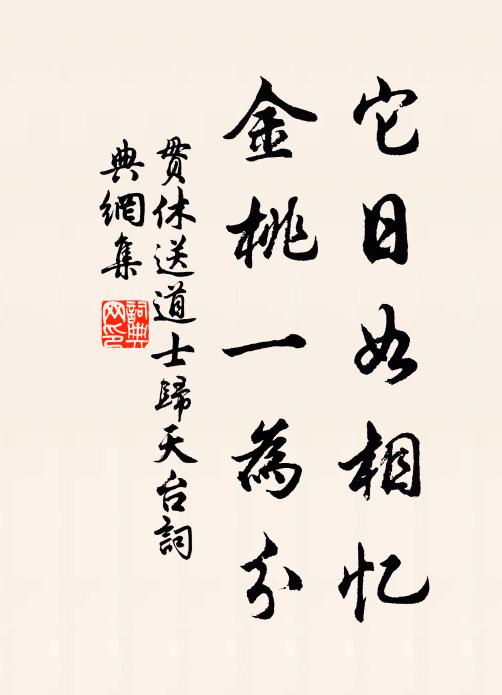 它日如相忆
金桃一為分
贯休送道士歸天台詞
典網集
詞典网印